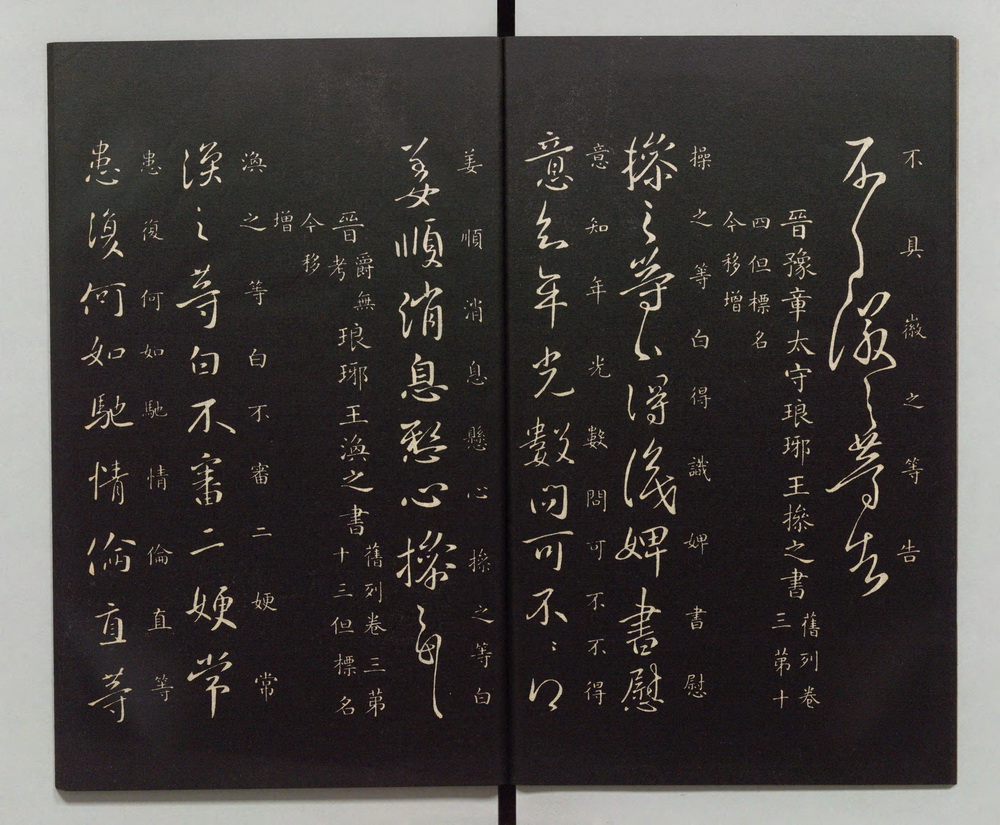 不具徽之等告
不具徽之等告
晉豫章太守琅琊王操之書
舊列卷
三第十
四但標名
今移增
操之等白得識婢書慰
操之等白得識婢書慰
意知年光數問可不不得
意知年光數問可不〻得
姜順消息懸心操之等白
姜順消息懸心操之等白
晉爵無考琅琊王渙之書
舊列卷三第
十三但標名
今移
增
渙之等白不審二嫂常
渙之等白不審二嫂常
患復何如馳情倫直等
患復何如馳情倫直等